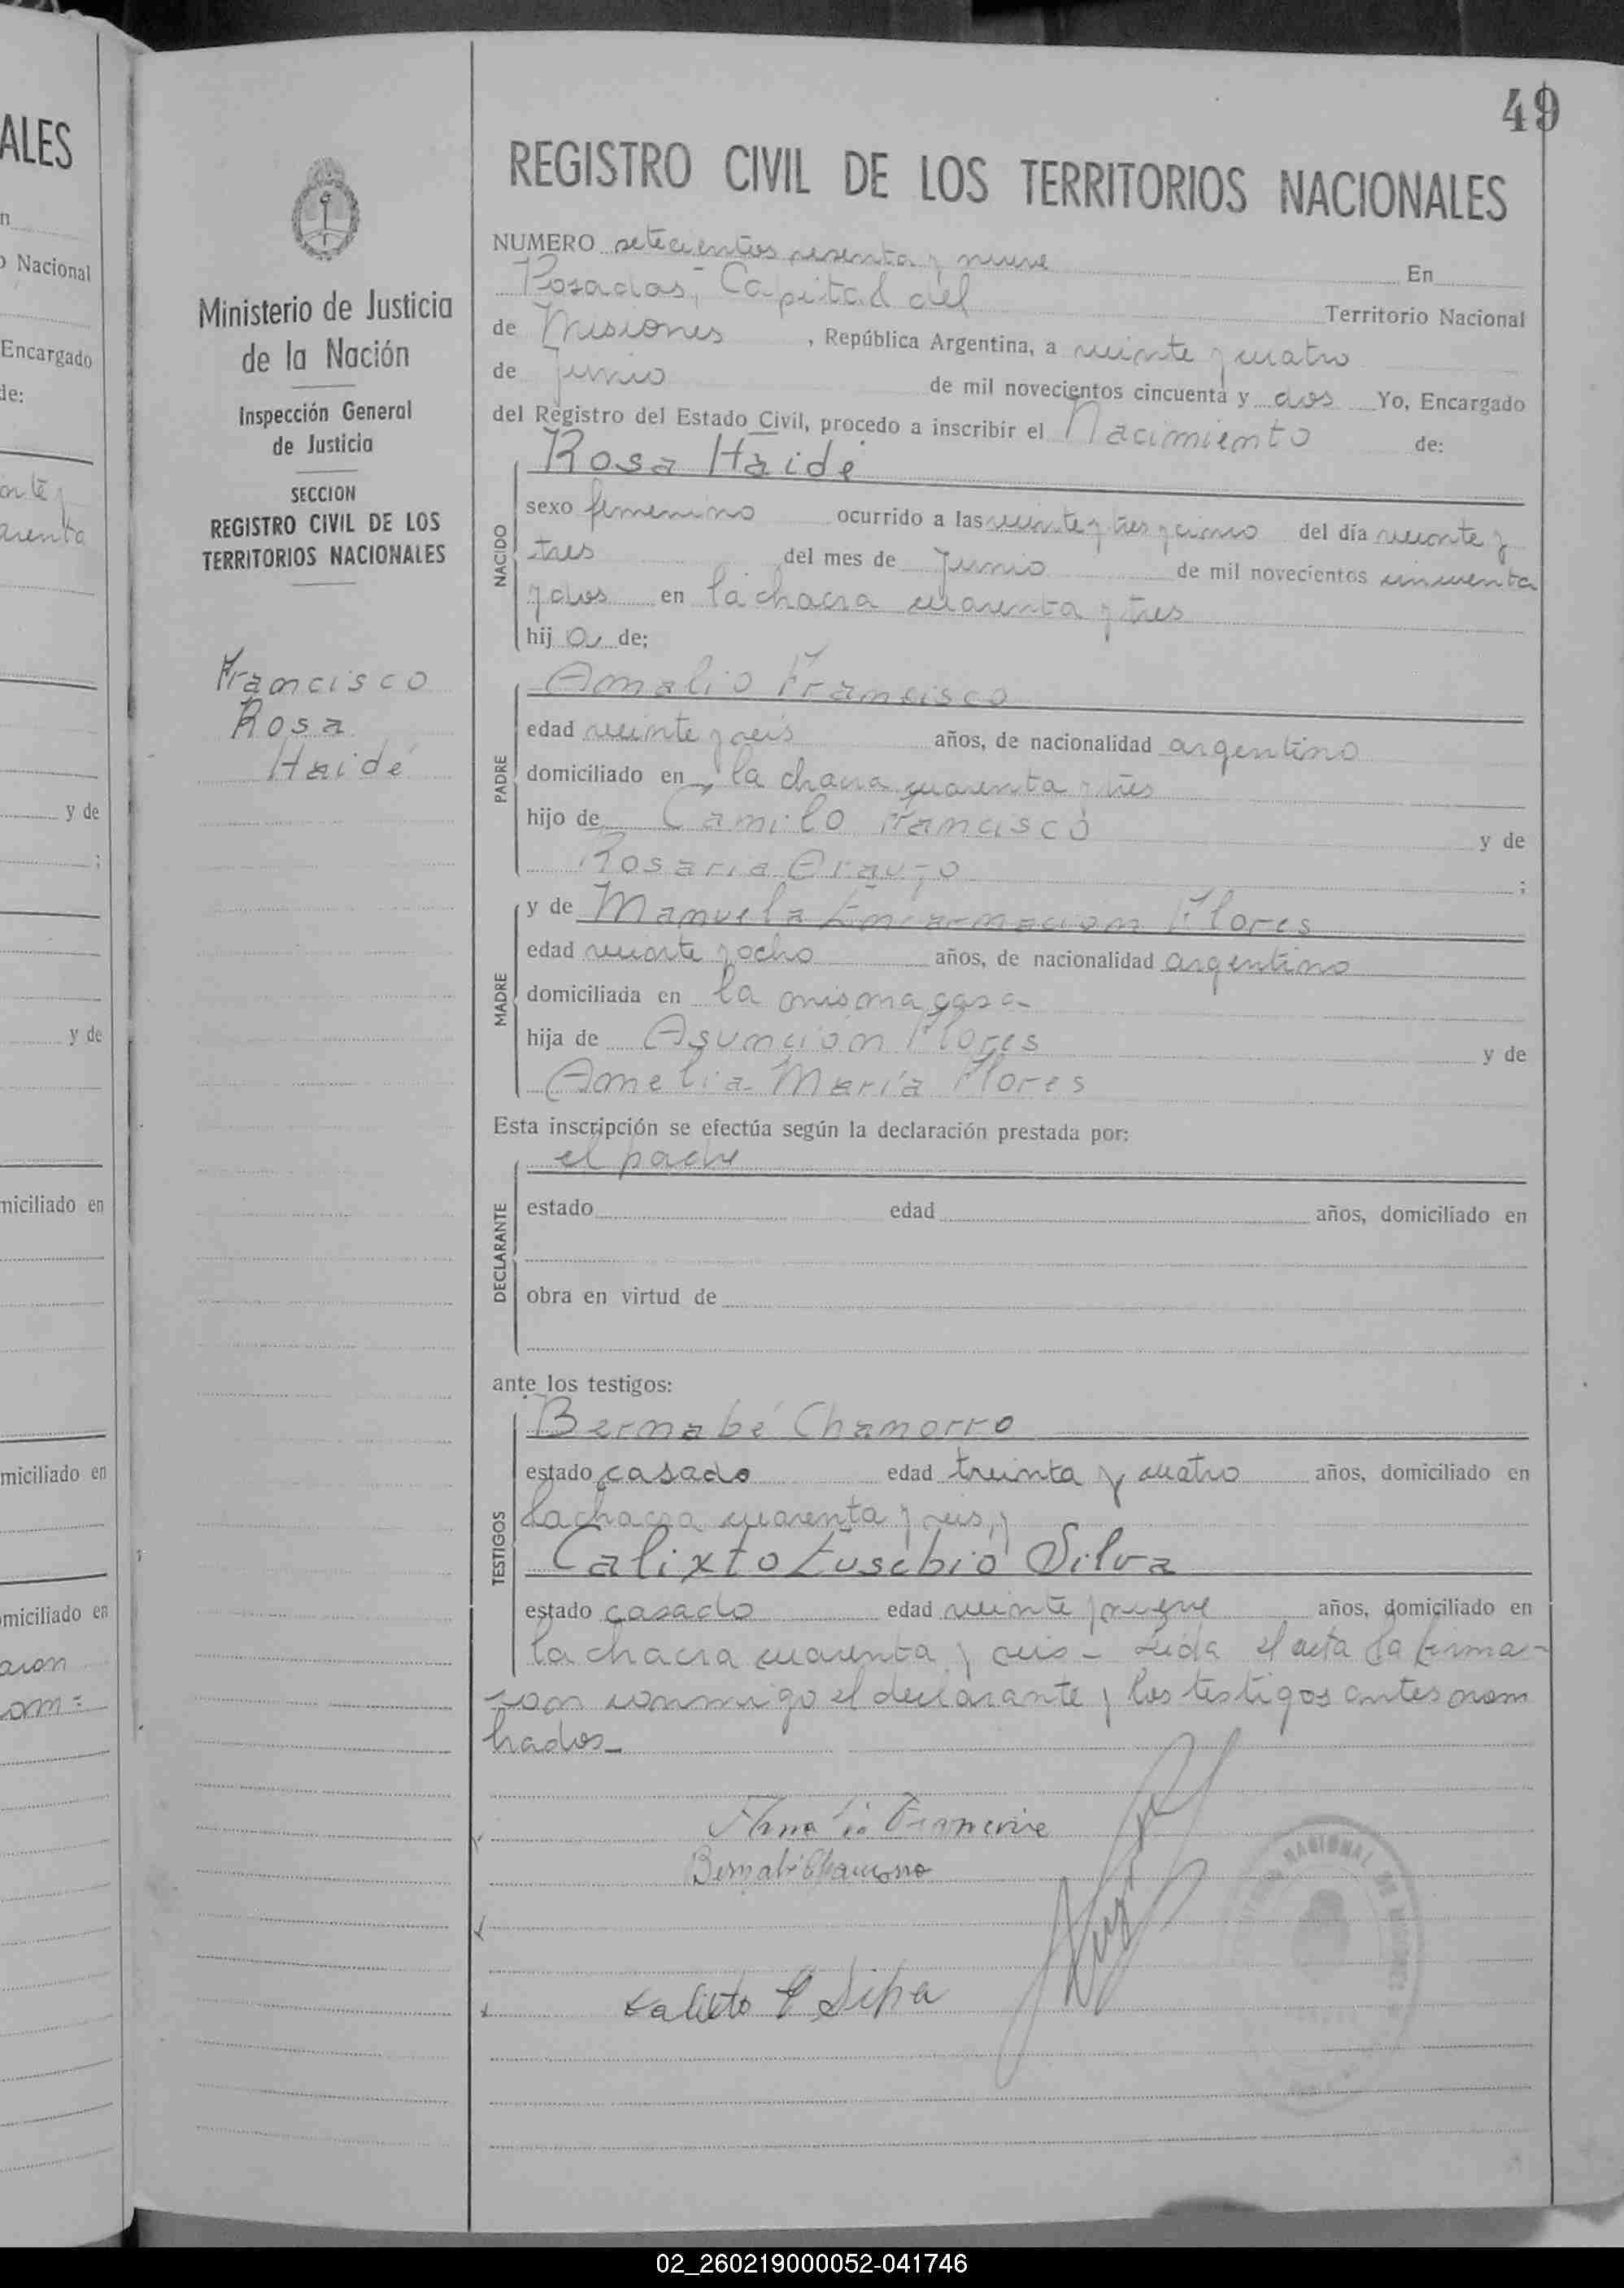 49
REGISTRO CIVIL DE LOS TERRITORIOS NACIONALES
Ministerio de Justicia
de la Nación
Inspección General
de Justicia
SECCION
REGISTRO CIVIL DE LOS
TERRITORIOS NACIONALES
Francisco
Rosa
Haidé
NUMERO setecientos sesenta y nueve En
Posadas, Capital del Territorio Nacional
de Misiones, República Argentina, a veinte y cuatro
de Junio de mil novecientos cincuenta y dos Yo, Encargado
del Registro del Estado Civil, procedo a inscribir el Nacimiento de:
Rosa Haidé
NACIDO
sexo femenino ocurrido a las veinte y tres y cinco del día veinte y
tres del mes de Junio de mil novecientos cincuenta
y dos en la chacra cuarenta y tres
hij a de:
Amalio Francisco
PADRE
edad veinte y seis años, de nacionalidad argentino
domiciliado en la chacra cuarenta y tres
hijo de Camilo Francisco y de
Rosaria Araujo ;
MADRE
y de Manuela Encarnación Flores
edad veinte y ocho años, de nacionalidad argentino
domiciliada en la misma casa
hija de Asunción Flores y de
Amelia María Flores
Esta inscripción se efectúa según la declaración prestada por:
el padre
DECLARANTE
estado edad años, domiciliado en
obra en virtud de
ante los testigos:
Bernabé Chamorro
TESTIGOS
estado casado edad treinta y cuatro años, domiciliado en
la chacra cuarenta y seis, y
Calixto Eusebio Silva
estado casado edad veinte y nueve años, domiciliado en
la chacra cuarenta y seis - Leida el acta la firma-
ron conmigo el declarante y los testigos antes nom
brados -
Bernabé Chamorro
Calixto E Silva
NACIONAL
ALES
n
o Nacional
Encargado
de:
y de
;
y de
miciliado en
miciliado en
omiciliado en
aron
om=
02_260219000052-041746